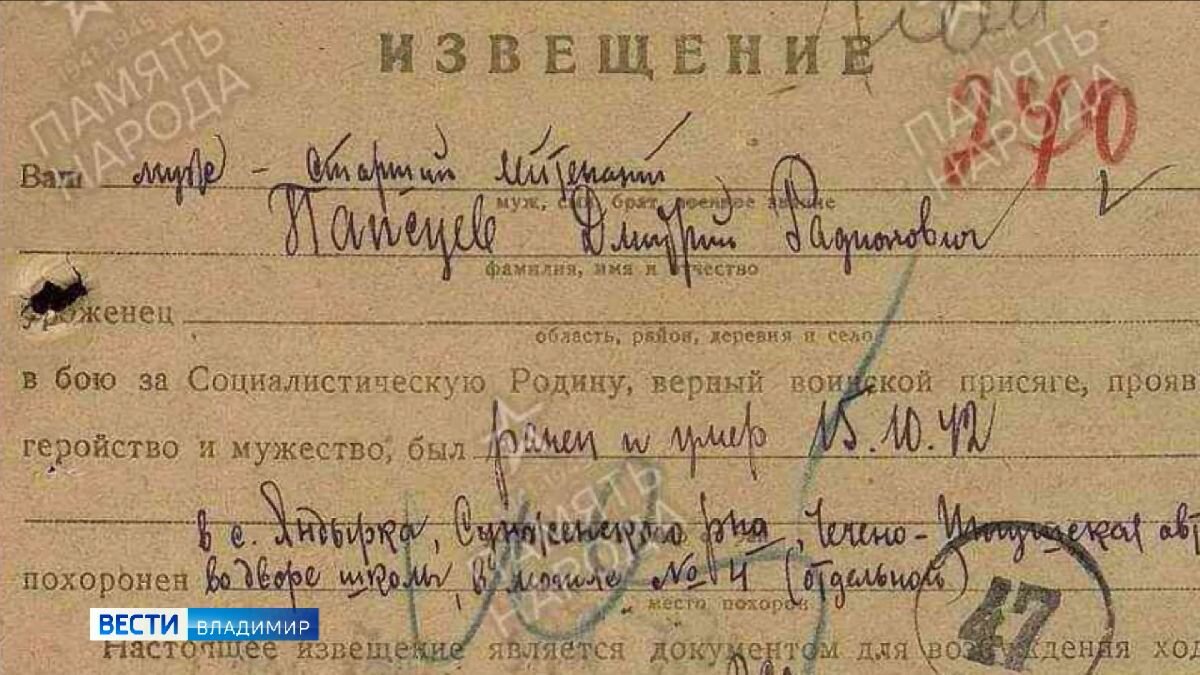 ИЗВЕЩЕНИЕ
240
Ваш муж - старший лейтенант
муж, сын, брат, военное звание
Папсуев Дмитрий Радионович
фамилия, имя и отчество
уроженец
область, район, деревня и село
в бою за Социалистическую Родину, верный воинской присяге, прояв
геройство и мужество, был ранен и умер 15.10.42
в с. Яндырка, Сунженского р-на, Чечено-Ингушская авт
похоронен во дворе школы, в могиле № 4 (отдельной)
место похорон
47
ВЕСТИ ВЛАДИМИР
Настоящее извещение является документом для возбуждения ход
ПАМЯТЬ
НАРОДА
1941-1945
ПАМЯТЬ
НАРОДА
ПАМЯТЬ
НАРОДА